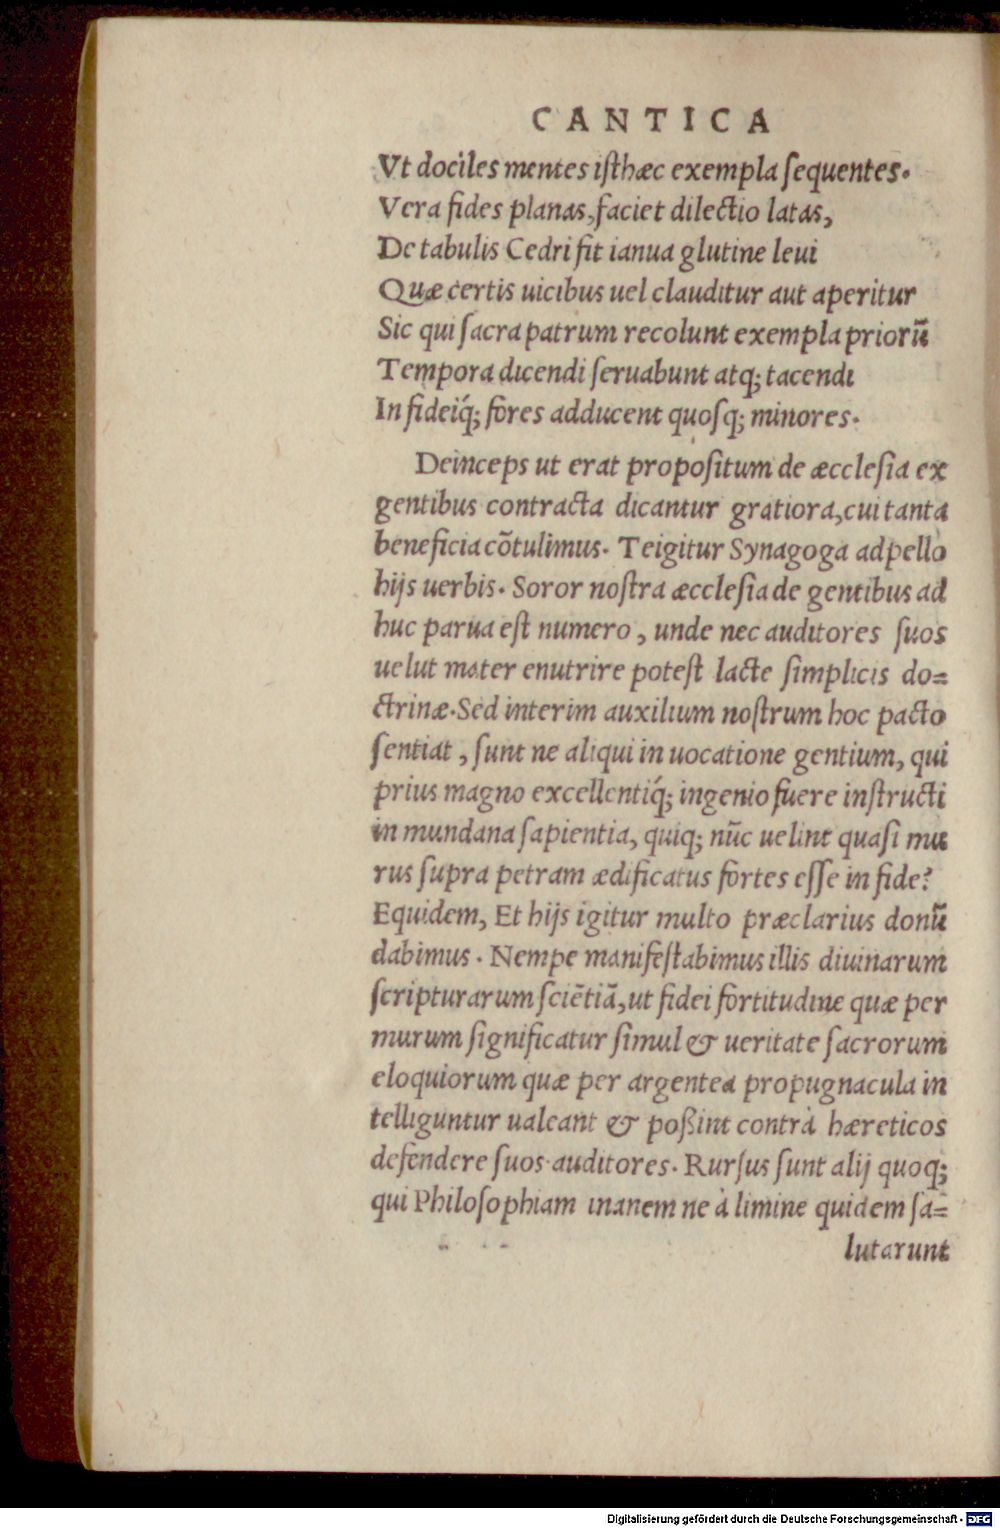 CANTICA
Vt dociles mentes isthæc exempla sequentes.
Vera fides planas, faciet dilectio latas,
De tabulis Cedri fit ianua glutine leui
Quæ certis uicibus uel clauditur aut aperitur
Sic qui sacra patrum recolunt exempla priorū
Tempora dicendi seruabunt atq; tacendi
In fideiq́; fores adducent quosq; minores.
Deinceps ut erat propositum de æcclesia ex
gentibus contracta dicantur gratiora, cui tanta
beneficia cōtulimus. Te igitur Synagoga adpello
hijs uerbis. Soror nostra æcclesia de gentibus ad
huc parua est numero, unde nec auditores suos
uelut mater enutrire potest lacte simplicis do=
ctrinæ. Sed interim auxilium nostrum hoc pacto
sentiat, sunt ne aliqui in uocatione gentium, qui
prius magno excellentiq́; ingenio fuere instructi
in mundana sapientia, quiq; nūc uelint quasi mu
rus supra petram ædificatus fortes esse in fide?
Equidem, Et hijs igitur multo præclarius donū
dabimus. Nempe manifestabimus illis diuinarum
scripturarum sciētiā, ut fidei fortitudine quæ per
murum significatur simul & ueritate sacrorum
eloquiorum quæ per argentea propugnacula in
telliguntur ualeant & poßint contrà hæreticos
defendere suos auditores. Rursus sunt alij quoq;
qui Philosophiam inanem ne à limine quidem sa=
lutarunt
Digitalisierung gefördert durch die Deutsche Forschungsgemeinschaft - DFG